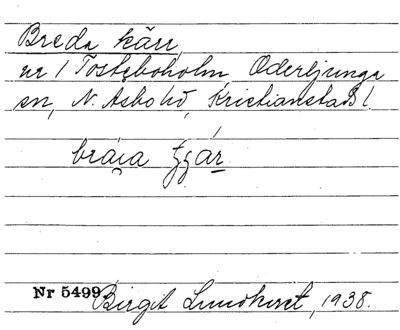 Breda kärr
nr 1 Tostaboholm, Oderljunga
sn, N. Åsbo hd, Kristianstads l.
Nr 5499 Birgit Lundkvist, 1938.